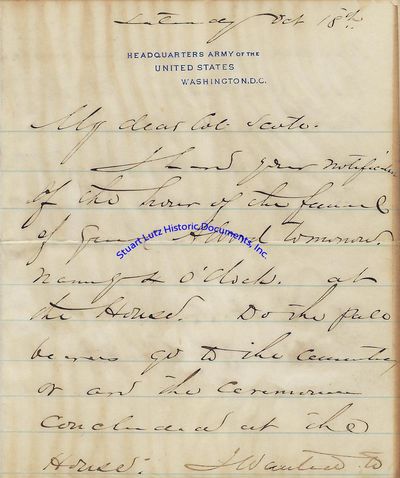 Saturday Oct 18th
HEADQUARTERS ARMY OF THE
UNITED STATES
WASHINGTON, D.C.
My dear Col. Scott.
I have your notification
of the hour of the funeral
of Genl tomorrow.
O'Clock. at
the House. Do the pall
bearers go to the cemetery
or are the ceremonies
concluded at the
House. I wanted to
Stuart Lutz Historic Documents, Inc.